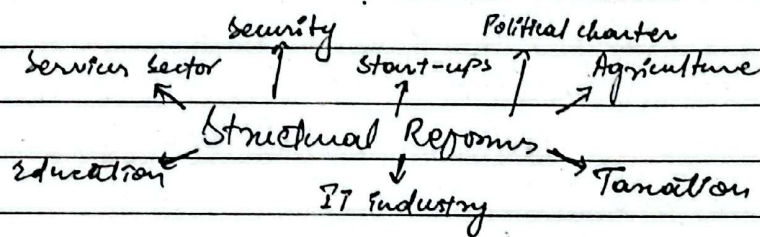 Security Political charter
Services Sector Start-ups Agriculture
Structural Reforms
Education Taxation
IT industry